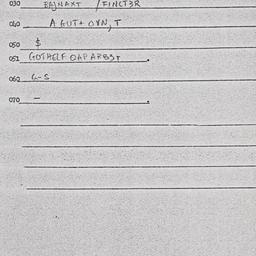 030 BAJNAXT / FINCT3R
040 A GUT+ OYN, T
050 $
051 GOTHELF OAP ARBST
060 G-S
070 -